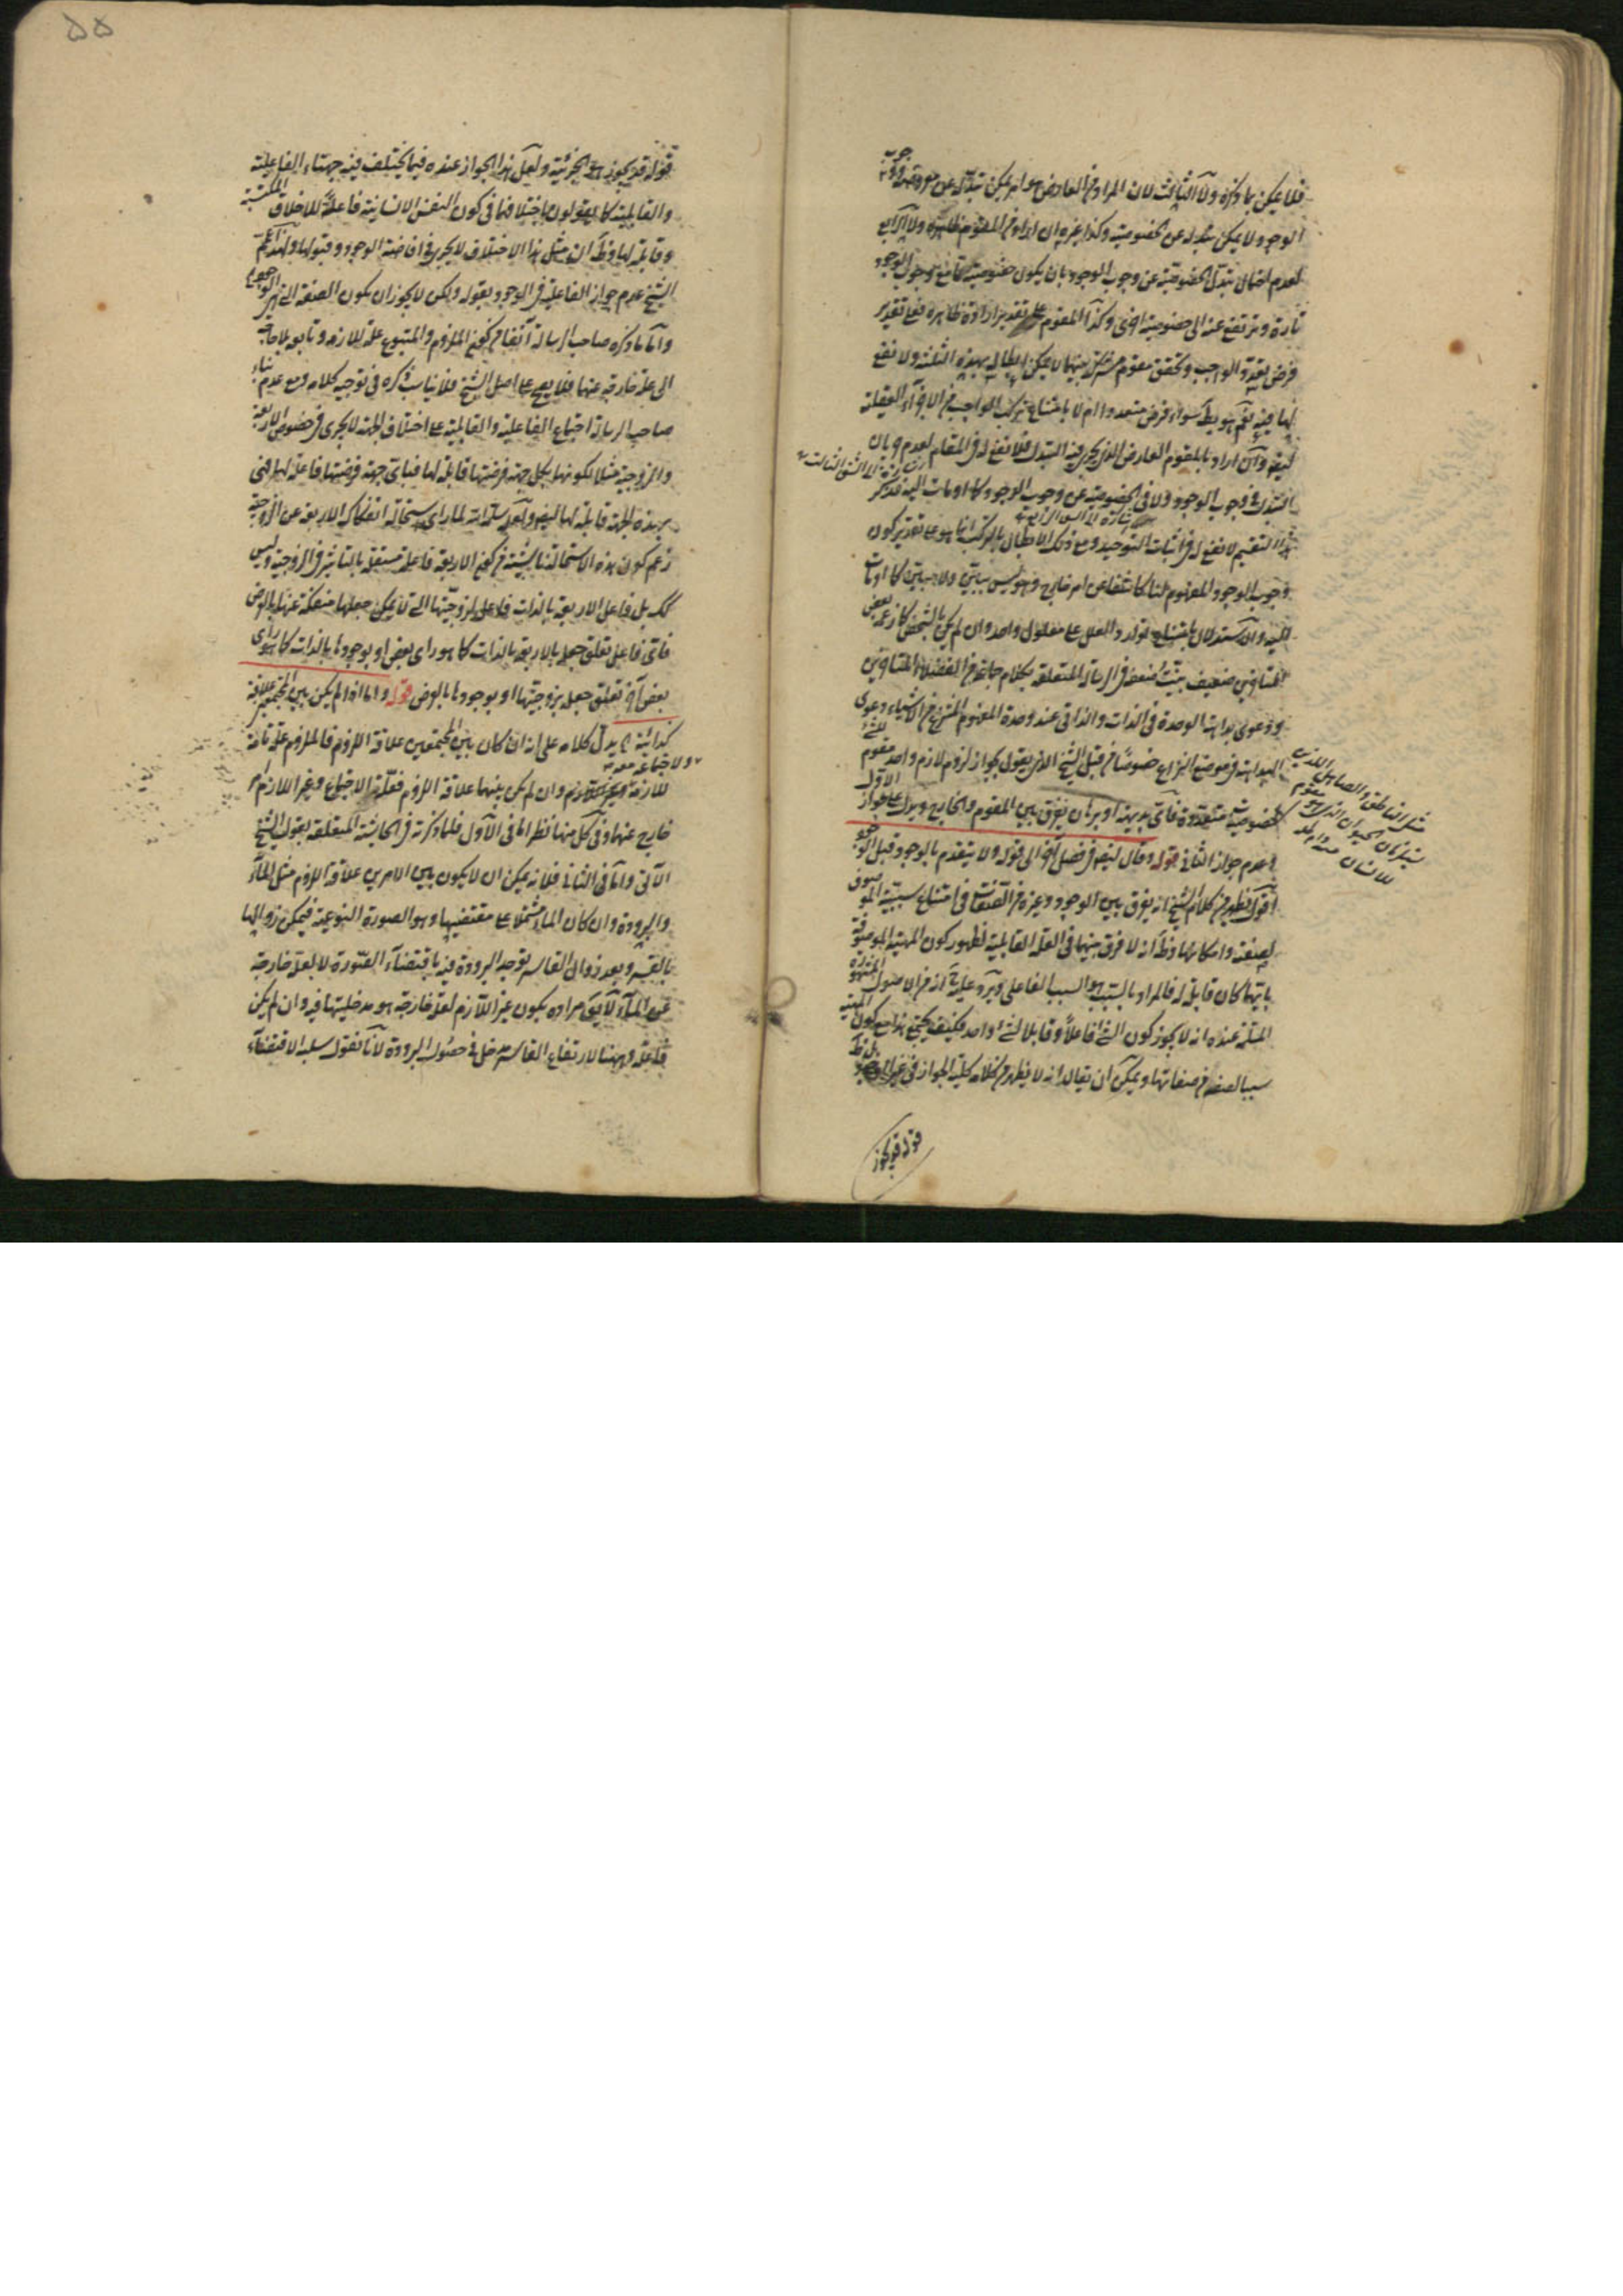 فلا يمكن بما ذكره ولا الثالث لان المراد من العارض هو انه يمكن تبدله عن معروضه
الوجود لا يمكن تبدله عن الخصوصية وكذا غيره ان اراد من المقوم ظاهره ولا الرابع
لعدم احتمال تبدل الخصوصية عن وجوب الوجود بان يكون خصوصية تجامع وجوب الوجود
تارة وترتفع عنه الى خصوصية اخرى وكذا المقوم على تقدير ارادة ظاهره فعلى تقدير
فرض تعدد الواجب وتحقق مقوم مشترك بينهما لا يمكن ابطاله بهذه الثلثة ولا نفع
لها فيه نعم هو يبطل سواء فرض متعددا ام لا بامتناع تركب الواجب من الاجزاء العقلية
ايضا وان اراد بالمقوم العارض الذي يجري فيه التبدل فلا نفع له في المقام لعدم جريان
التبدل في وجوب الوجود ولا في الخصوصية عن وجوب الوجود كما اومات اليه فذكر
هذا التقسيم لا نفع له في اثبات التوحيد ومع ذلك الابطال بالتركب انما هو على تقدير كون
وجوب الوجود المفهوم لنا كاشفا عن امر خارج وهو ليس ببين ولا مبين كما اومات
اليه والاستدلال بامتناع توارد العلل على معلول واحد وان لم يكن بالشخص كما زعمه بعض
المتاخرين ضعيف بينت ضعفه في الرسالة المتعلقة بكلام جماعة من الفضلاء المتاخرين
ودعوى بداهة الوحدة في الذات والذاتي عند وحدة المفهوم المنتزع من الاشياء دعوى
البداهة في موضع النزاع خصوصا من قبل الشيخ الذي يقول بجواز لزوم لازم واحد مقوم
لخصوصيات متعددة فاتى بديهة او برهان يفرق بين المقوم والخارج ويدل على جواز الاول
وعدم جواز الثاني قوله وقال ايضا في فصل آخر الى قوله ولا يتقدم بالوجود قبل الوجود
اقول يظهر من كلام الشيخ انه يفرق بين الوجود وغيره من الصفات في امتناع سببية الموصوف
لصفته وامكانها وظ انه لا فرق بينهما في العلة القابلية لظهور كون المهية الموصوفة
بايتهما كان قابلة له فالمراد بالسبب هو السبب الفاعلي ويرد عليه ح انه من الاصول المشهورة
المسلمة عنده انه لا يجوز كون الشئ فاعلا وقابلا لشئ واحد فكيف يجتمع هذا مع كون المهية
سببا لصفة من صفاتها ويمكن ان يقال انه لا يظهر من كلامه كلية الجواز في غير الوجود
قوله قد يجوز
مثل الناطق والصاهل اللذين
يستلزمان الحيوان الذي هو مقوم
للانسان
قوله قد يجوز هو الجزئية ولعل هذا الجواز عنده فيما يختلف فيه جهتاء الفاعلية
والقابلية كما يقولون باختلافهما في كون النفس الانسانية فاعلة للاخلاق المكتسبة
وقابلة لها وظ ان مثل هذا الاختلاف لا يجري في افاضة الوجود وقبولها ولهذا عمم
الشيخ عدم جواز الفاعلية في الوجود بقوله ولكن لا يجوز ان يكون الصفة التي هي الوجود
واما ما ذكره صاحب الرسالة آنفا من كون الملزوم والمتبوع علة للازمه وتابعه بلا حاجة
الى علة خارجة عنها فلا يصح على اصل الشيخ فلا يناسب ذكره في توجيه كلامه ومع عدم بناء
صاحب الرسالة اجتماع الفاعلية والقابلية على اختلاف الجهة لا يجري في خصوص الاربعة
والزوجية مثلا لكونها بكل جهة فرضتها قابلة لها فباتى جهة فرضتها فاعلة لها فهي
بهذه الجهة قابلة لها ايضا ولعله سلمه الله لما راى استحالة انفكاك الاربعة عن الزوجية
زعم كون هذه الاستحالة ناشئة من كون الاربعة فاعلة مستقلة بالتاثير في الزوجية وليس
كك بل فاعل الاربعة بالذات فاعل لزوجيتها التي لا يمكن جعلها منفكة عنها بالعرض
فاتى فاعل تعلق جعله بالاربعة بالذات كما هو راى بعض او بوجودها بالذات كما هو راى
بعض آخر تعلق جعله بزوجيتها او بوجودها بالعرض قوله واما اذا لم يكن بين المجتمعين علاقة
ذاتية الخ يدل كلامه على انه اذا كان بين المجتمعين علاقة اللزوم فالملزوم علة تامة
ولاجتماعه معه
للازمه وان لم يكن بينهما علاقة اللزوم فعلة الاجتماع وغير اللازم امر
خارج عنهما وفي كل منهما نظر اما في الاول فلما ذكرته في الحاشية المتعلقة بقول الشيخ
الآتي واما في الثاني فلانه يمكن ان لا يكون بين الامرين علاقة اللزوم مثل الماء
والبرودة وان كان الماء مشتملا على مقتضيها وهو الصورة النوعية فيمكن زوالها
بالقسر وبعد زوال القاسر توجد البرودة فيه باقتضاء الصورة لا بعلة خارجة
عن الماء لا يقال مراده بكون غير اللازم لعلة خارجة هو مدخليتها فيه وان لم يكن
فاعلة وههنا لارتفاع القاسر دخل في حصول البرودة لانا نقول سلب الاقتضاء
۵۵